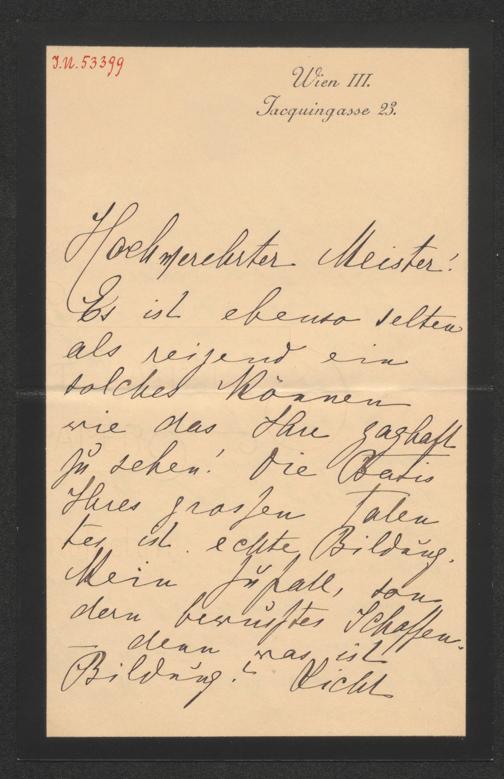 J.N. 53399
Wien III.
Jacquingasse 23.
Hochverehrter Meister!
Es ist ebenso selten
als reizend ein
solches Können
wie das Ihre zaghaft
zu sehen! Die Basis
Ihres grossen Talen
tes ist echte Bildung.
Kein Zufall, son
dern bewußtes Schaffen.
— denn was ist
Bildung? Nicht